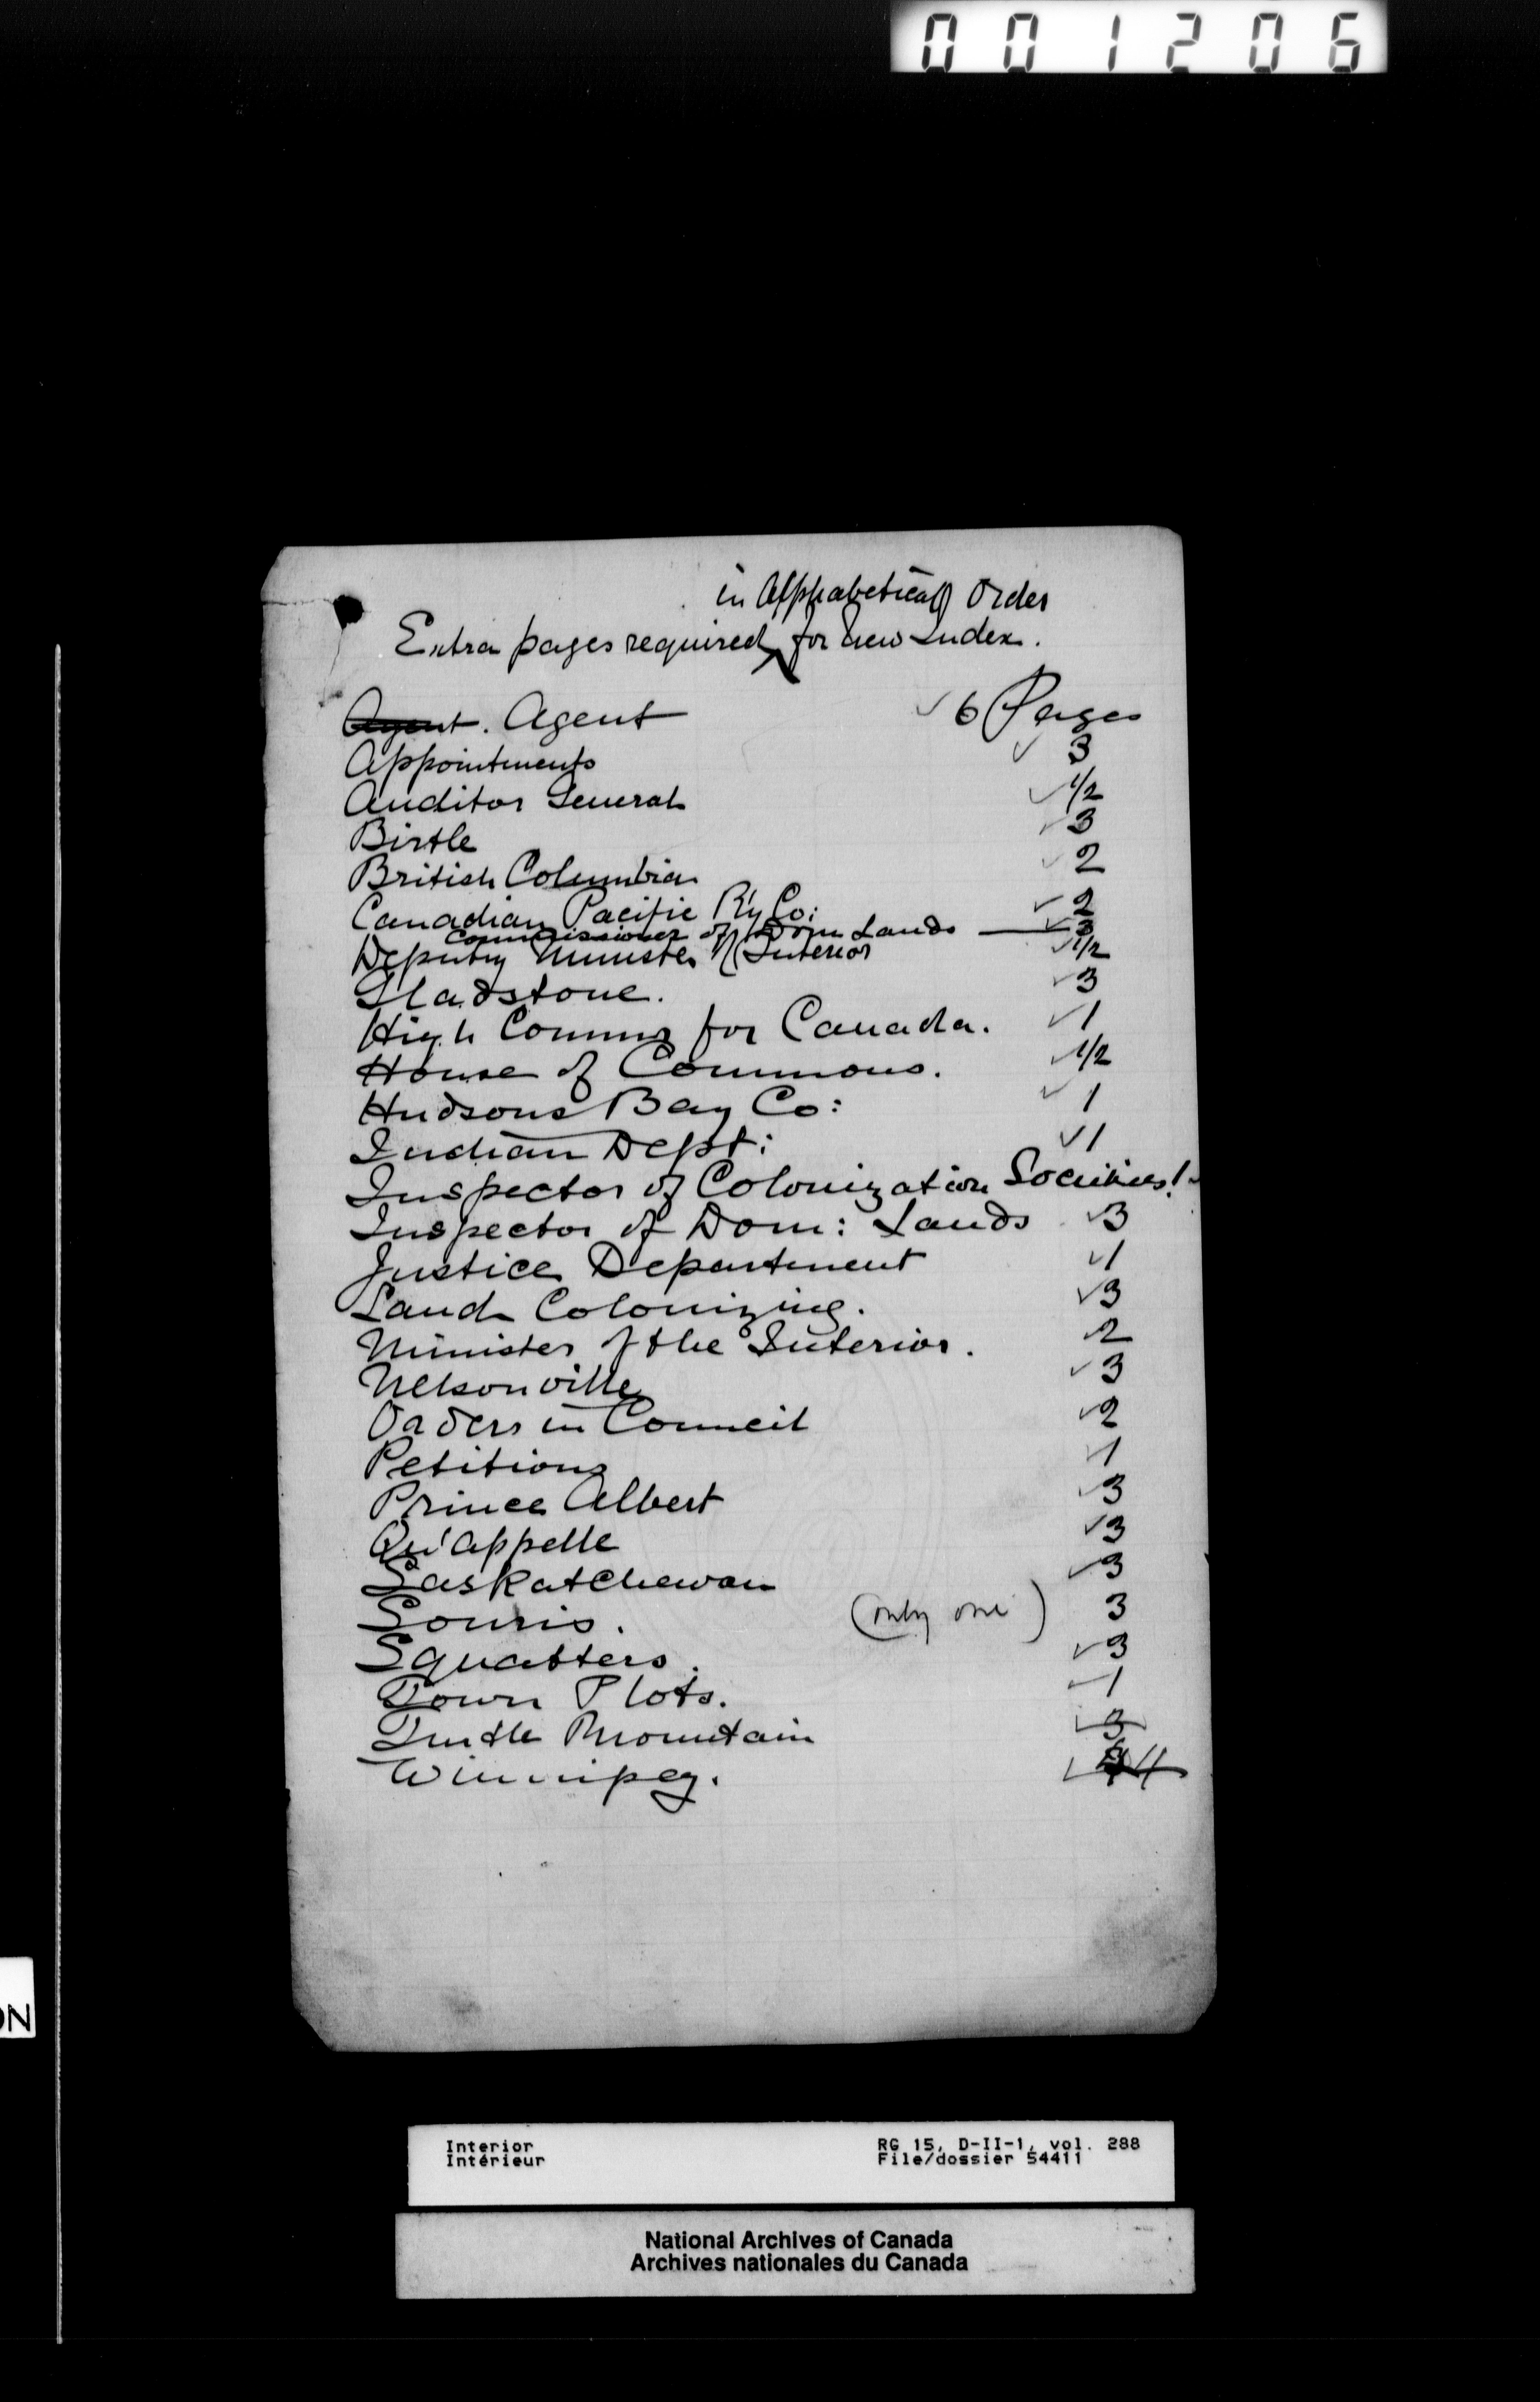 001206
in Alphabetical Order
Extra pages required for new Index.
Agent. Agent ✓ 6 Pages
Appointments ✓ 3
Auditor General ✓ 1/2
Birtle ✓ 3
British Columbia ✓ 2
Canadian Pacific R'y Co: ✓ 2
Commissioner of Dom Lands — ✓ 3
Deputy Minister of Interior ✓ 1/2
Gladstone. ✓ 3
High Commr for Canada. ✓ 1
House of Commons. ✓ 1/2
Hudsons Bay Co: ✓ 1
Indian Dept: ✓ 1
Inspector of Colonization Societies! ✓
Inspector of Dom: Lands ✓ 3
Justice Department ✓ 1
Land Colonizing. ✓ 3
Minister of the Interior. ✓ 2
Nelsonville ✓ 3
Orders in Council ✓ 2
Petitions ✓ 1
Prince Albert ✓ 3
Qu'appelle ✓ 3
Saskatchewan ✓ 3
Souris. (only one) 3
Squatters. ✓ 3
Town Plots. ✓ 1
Turtle Mountain ✓ 3
Winnipeg. ✓
ON
Interior RG 15, D-II-1, vol. 288
Intérieur File/dossier 54411
National Archives of Canada
Archives nationales du Canada